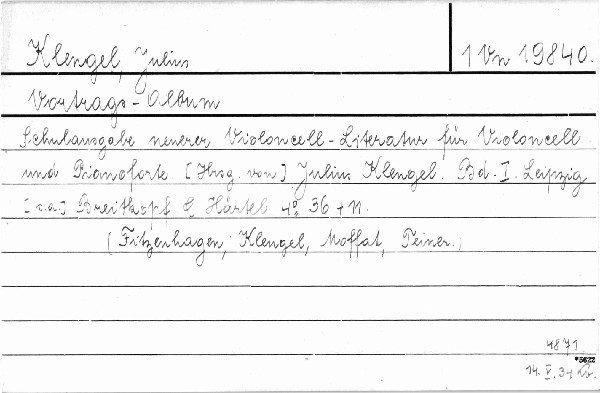 Klengel, Julius
1 Vn 19840.
Vortrags-Album
Schulausgabe neuerer Violoncell-Literatur für Violoncell
und Pianoforte. [Hrsg. von] Julius Klengel. Bd. I. Leipzig
[s.a.] Breitkopf & Härtel 4° 36 + 11.
(Fitzenhagen, Klengel, Moffat, Peiner.)
4871
*5622
14. V. 34